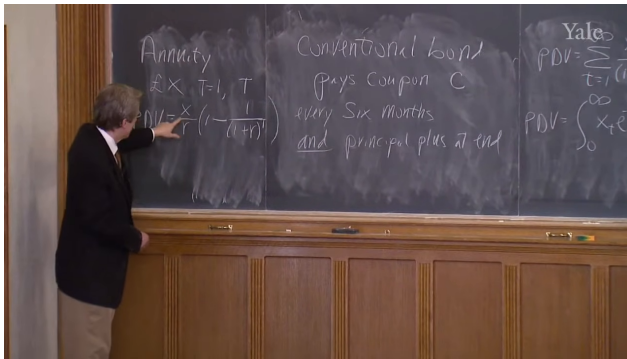 Annuity
£X T=1, T
PDV = x/r (1 - 1/(1+r)^T)
Conventional bond
pays coupon C
every six months
and principal plus at end
Yale
PDV = ∑ ∞ T=1 1
PDV = ∫ ∞ 0 x_t e